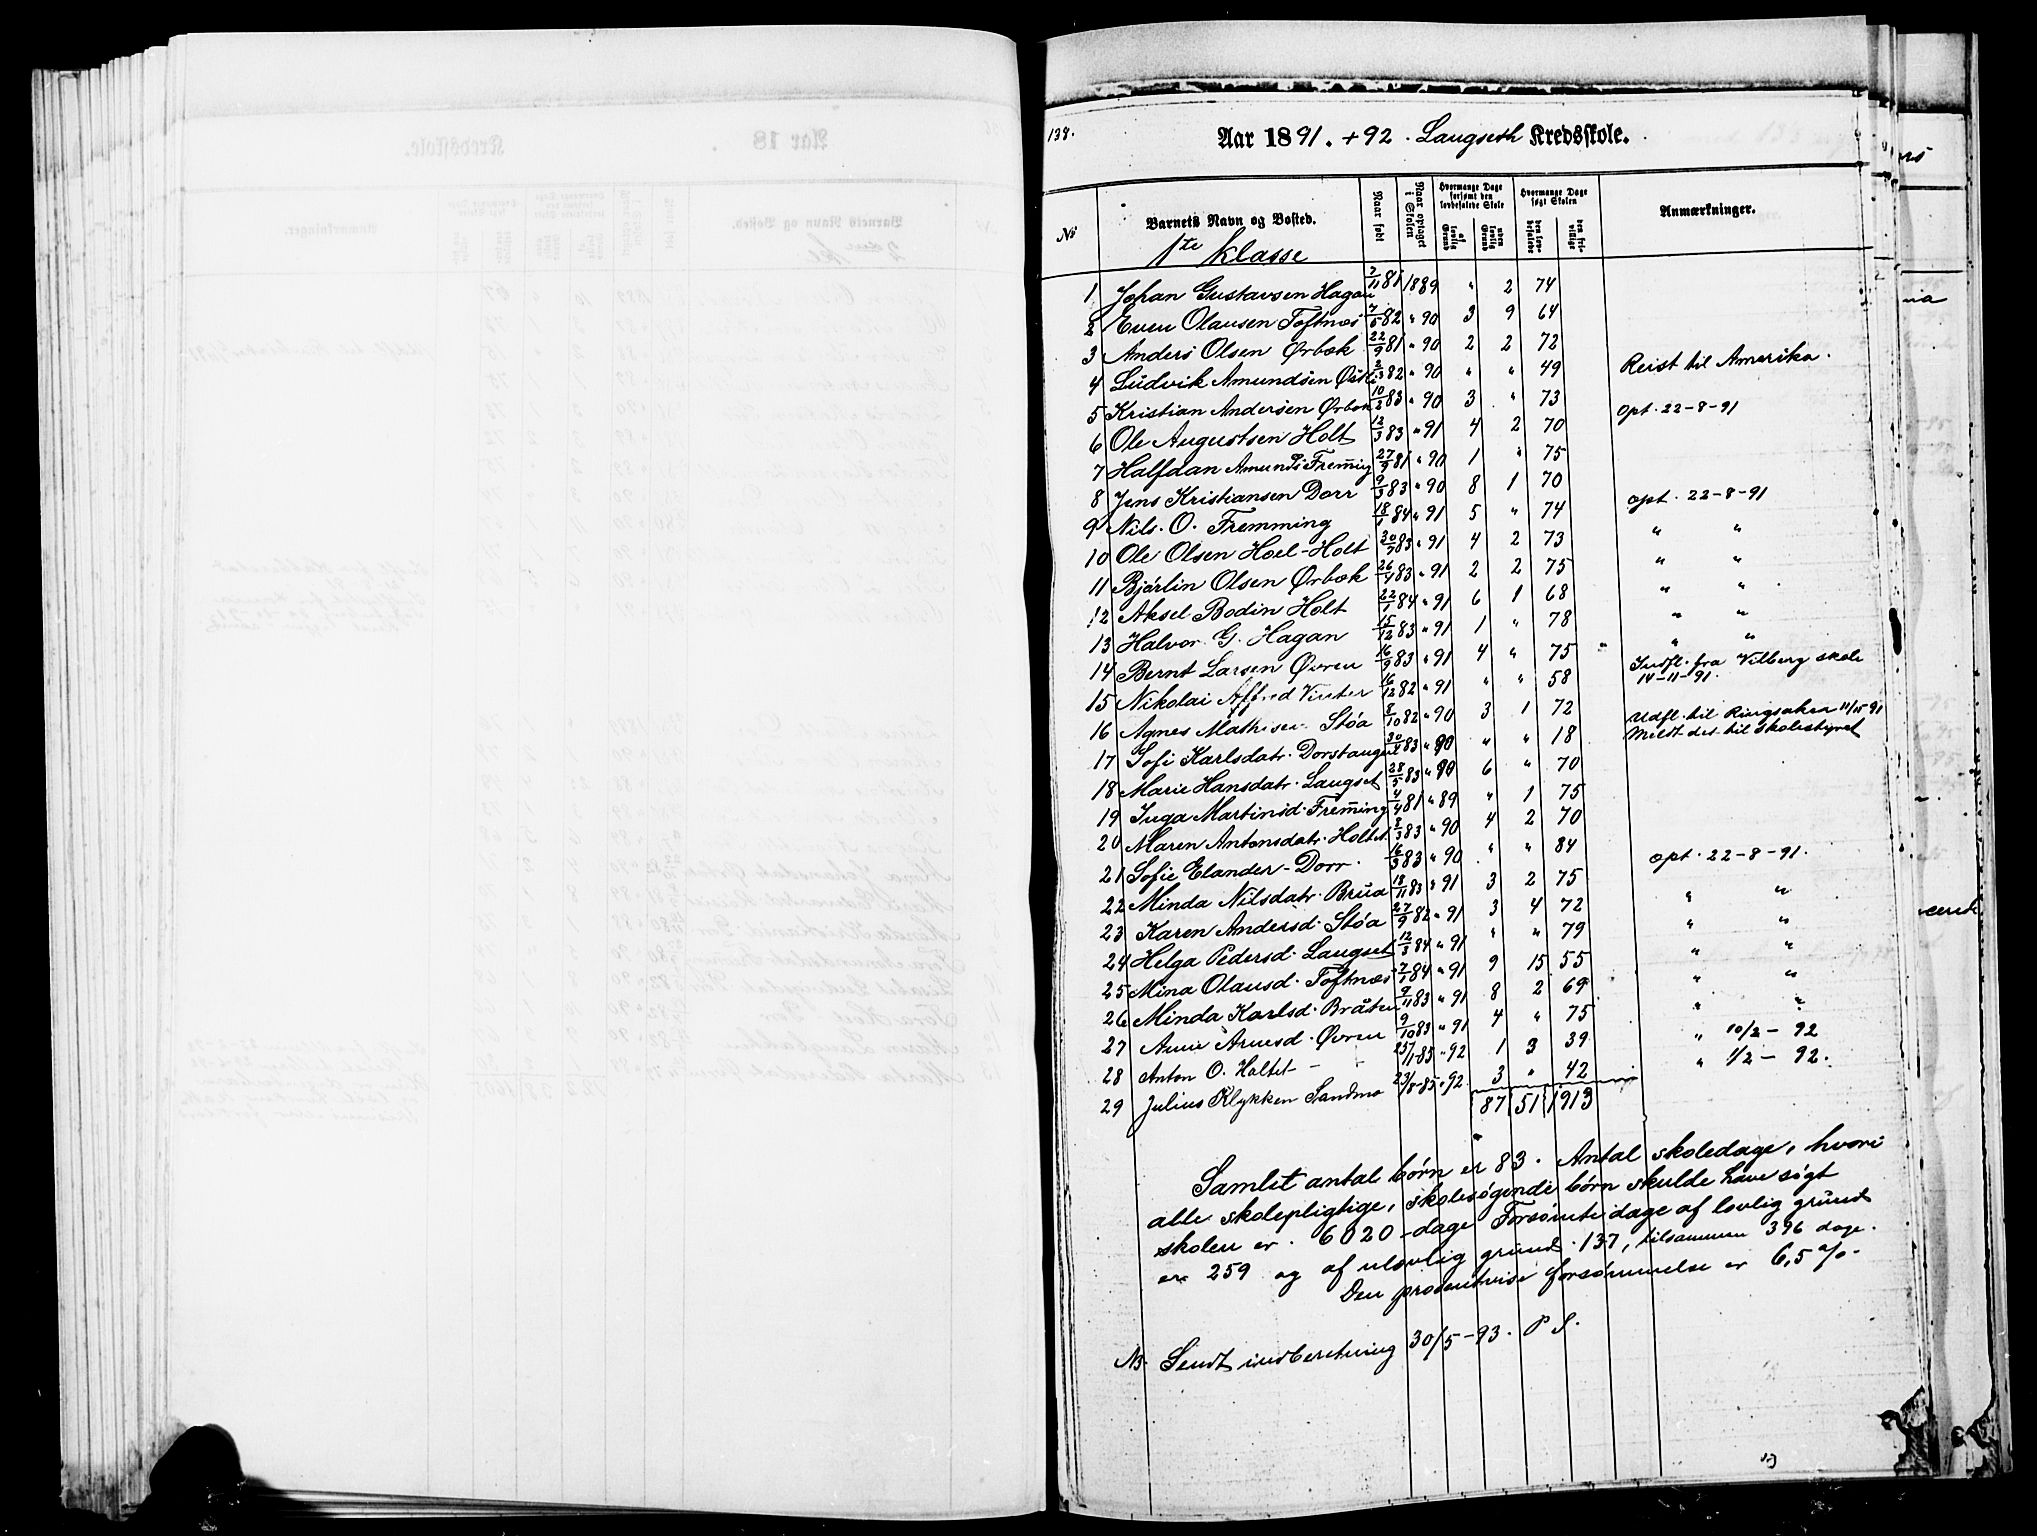 138.
Aar 1891. + 92. Laugseth Kredsskole.
No
Barnets Navn og Bosted.
Naar født
Naar optaget i Skolen
Hvormange Dage forsømt den lovbefalede Skole
af lovlig Grund
uden lovlig Grund
Hvormange Dage søgt Skolen
den lovbefalede
den frivillige
Anmærkninger.
1te Klasse
1 Johan Gustavsen Hagan 7/11 81 1889 " 2 74
2 Even Olausen Toftnæs 7/5 82 " 90 3 9 64
3 Anders Olsen Ørbæk 22/9 81 " 90 2 2 72
4 Ludvik Amundsen Østli 2/3 82 " 90 " " 49 Reist til Amerika.
5 Kristian Andersen Ørbæk 10/2 83 " 90 3 " 73
6 Ole Augustsen Holt 12/3 83 " 91 4 2 70 opt. 22-8-91
7 Halfdan Amunds Fremig 27/9 81 " 90 1 " 75
8 Jens Kristiansen Dorr 9/3 83 " 90 8 1 70
9 Nils. O. Fremming 18/1 84 " 91 5 " 74 opt. 22-8-91
10 Ole Olsen Hoel-Holt 30/9 83 " 91 4 2 73 " "
11 Bjárlin Olsen Ørbæk 26/4 83 " 91 2 2 75 " "
12 Aksel Bodin Holt 22/1 84 " 91 6 1 68 " "
13 Halvor G. Hagan 15/12 83 " 91 1 " 78 " "
14 Bernt Larsen Øvren 16/9 83 " 91 4 " 75 " "
15 Nikolai Alfred Vinter 16/12 82 " 91 " " 58 Indfl. fra Vilberg skole 14-11-91.
16 Agnes Mathisen Støa 8/10 82 " 90 3 1 72
17 Sofi Karlsdatr. Dorstaugu 30/4 83 " 90 " " 18 Udfl. til Ringsaker 11/15 91
Meldt det til Skolestyret
18 Marie Hansdatr. Laugset 28/5 83 " 90 6 " 70
19 Inga Martinsd. Freming 4/4 81 " 89 " 1 75
20 Maren Antonsdatr. Holtet 8/3 83 " 90 4 2 70
21 Sofie Elander-Dorr. 16/3 83 " 90 " " 84
22 Minda Nilsdatr. Brua 18/11 83 " 91 3 2 75 opt. 22-8-91.
23 Karen Andersd. Støa 27/9 82 " 91 3 4 72 " "
24 Helga Pedersd. Laugset 12/3 84 " 91 " " 79 " "
25 Mina Olausd. Toftnæs 7/1 84 " 91 9 15 55 " "
26 Minda Karlsd. Bråten 9/11 83 " 91 8 2 69 " "
27 Anne Arnesd. Øvren 9/10 83 " 91 4 " 75 " "
28 Anton O. Holtet - - 25/11-83 " 92 1 3 39 " 10/2 - 92
29 Julius Klykken Sandmo 23/8-85 " 92 3 " 42 " 1/2 - 92.
87 51 1913
Samlet antal børn er 83. Antal skoledage, hvori
alle skolepligtige, skolesøgende børn skulde have søgt
skolen er. 6020 - dage Forsømte dage af lovlig grund
er 259 og af ulovlig grund. 137, tilsammen 396 dage.
Den procentvise forsømmelse er 6,5 %.
NB. Sendt indberetning 30/5-93. P S.